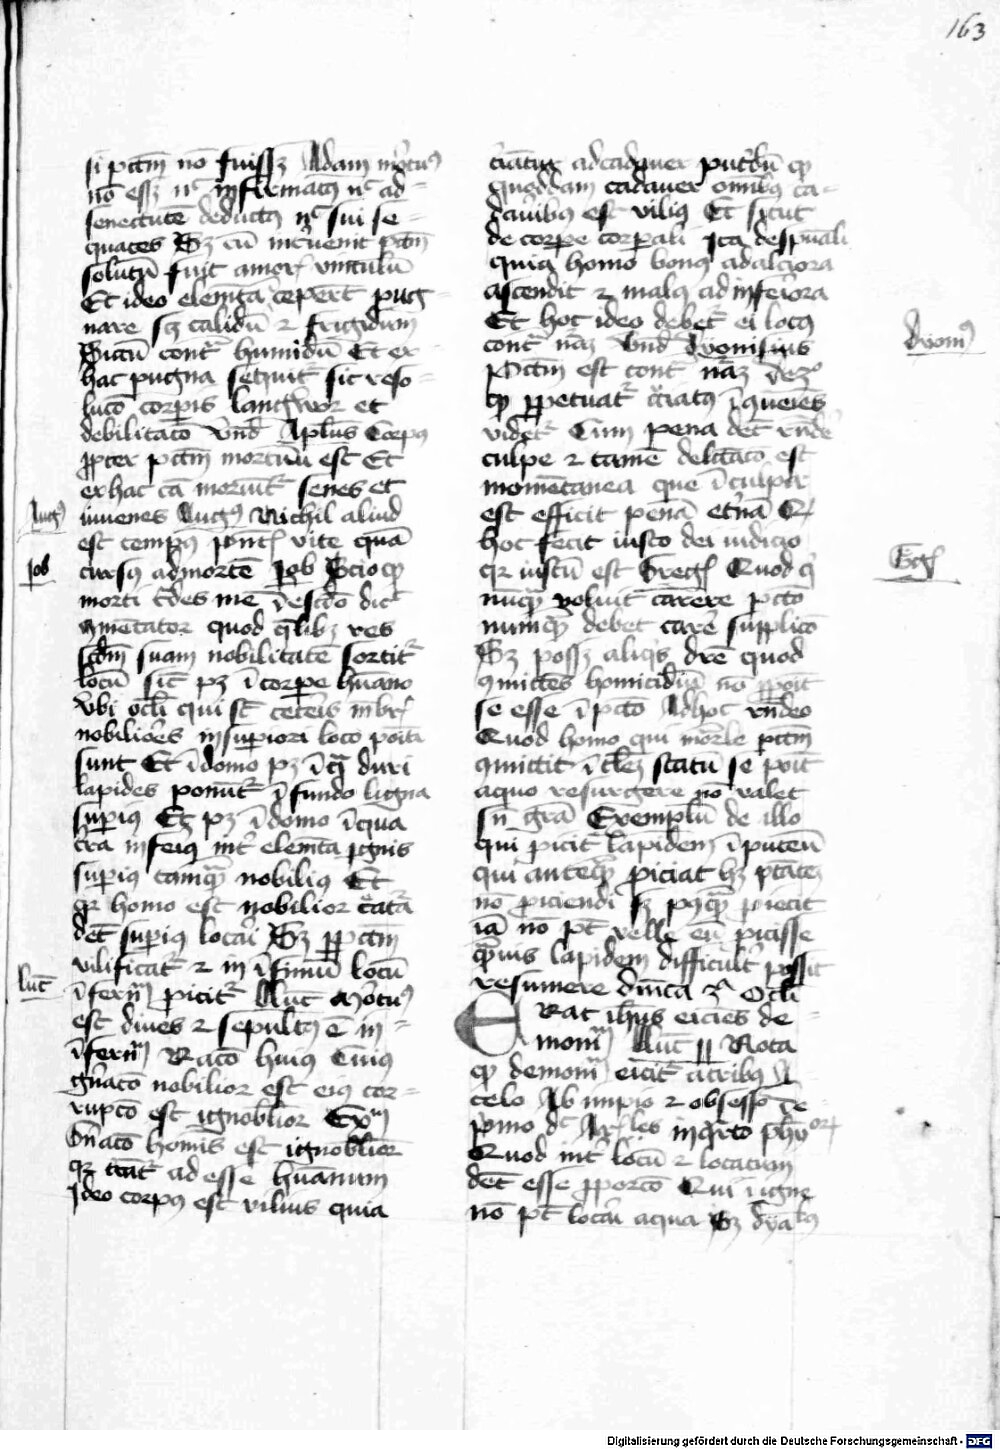 163
si pctm no fuissz Adam mortuus
no essz nec infirmatus nec ad
senectutē deductus nec sui se
quaces Sz cū intervenit pctm
solutū fuit amoris vinculū
Et ideo elemēta ceperūt pug
nare scz calidū et frigidum
Siccū contra humidū Et ex
hac pugna sequitur sic reso
lucō corporis languor et
debilitacō Vnde Aplus Corpus
ppter pctm mortuū est Et
ex hac cā moriūtur senes et
iuvenes Augus Nichil aliud
est tempus pntis vite quā
cursus ad mortē Job Scio qp
morti trades me
cōmentator quod quelibz res
scdm suam nobilitatē sortitur
locū sic pz ī corpe humano
Vbi oculi qui st ceteris mēbris
nobiliores in supiori loco positi
sunt Et ī domo pz ī qua duri
lapides ponūtur ī fundo ligna
supius Et pz ī domo ī qua
terra inferius inter elemēta ignis
supius tamquam nobilius Et
quia homo est nobilior creatura
debet supius locari Sz pp pctm
vilificatur et in īfimū locū
īferni picitur Luc Mortuus
est dives et sepultus ē in
īferno Racō huius Cuius
gnacō nobilior est eius cor
rupcō est ignobilior Exm
Gnacō hominis est ignobilior
quia ad esse humanum
Ideo corpus est vilius quia
Augus
Job
Luc
ad cadauer putridū qp
quoddam cadauer omnibus ca
daueribus est vilius Et sicut
de corpe corporali Ita de spuali
quia homo bonus ad alciora
ascendit et malus ad inferiora
Et hoc ideo debetur ei locus
contra nāz Vnde dyonisius
Pctm est contra nāz
qp ppetuatur cruciatus
videtur Cum pena debet rndere
culpe et tamē delectacō est
momētanea que ī culpa
est efficit penā eternā Et
hoc fecit iusto dei iudicio
quia iustū est Gregs Quod qui
nunquam voluit carere pccto
numquam debet carere supplicō
Sz possz aliquis dicere quod
cōmittēs homicidiū no pponit
se esse ī pccto Ad hoc rndeo
Quod homo qui mortale pctm
cōmittit ī talez statū se ponit
a quo resurgere no valet
sn grā Exemplū de illo
qui picit lapidem ī puteū
qui antequam piciat hz ptatez
no piciendi sz postquam piecit
iā no pt velle eū picisse
quāuis lapidem difficulter possit
resumere dnica 3a Oculi
Erat ihus eiciēs de
moniū Luc 11 Nota
qp demoniū eicitur a tribus A
celo Ab impio et obsesso De
primo dicit Ar'les in quarto phisicorum
Quod inter locū et locatum
debet esse pporcō Qui ī igne
no pt locari aqua Sz dyabolus
dyonis
Gregs
Digitalisierung gefördert durch die Deutsche Forschungsgemeinschaft - DFG